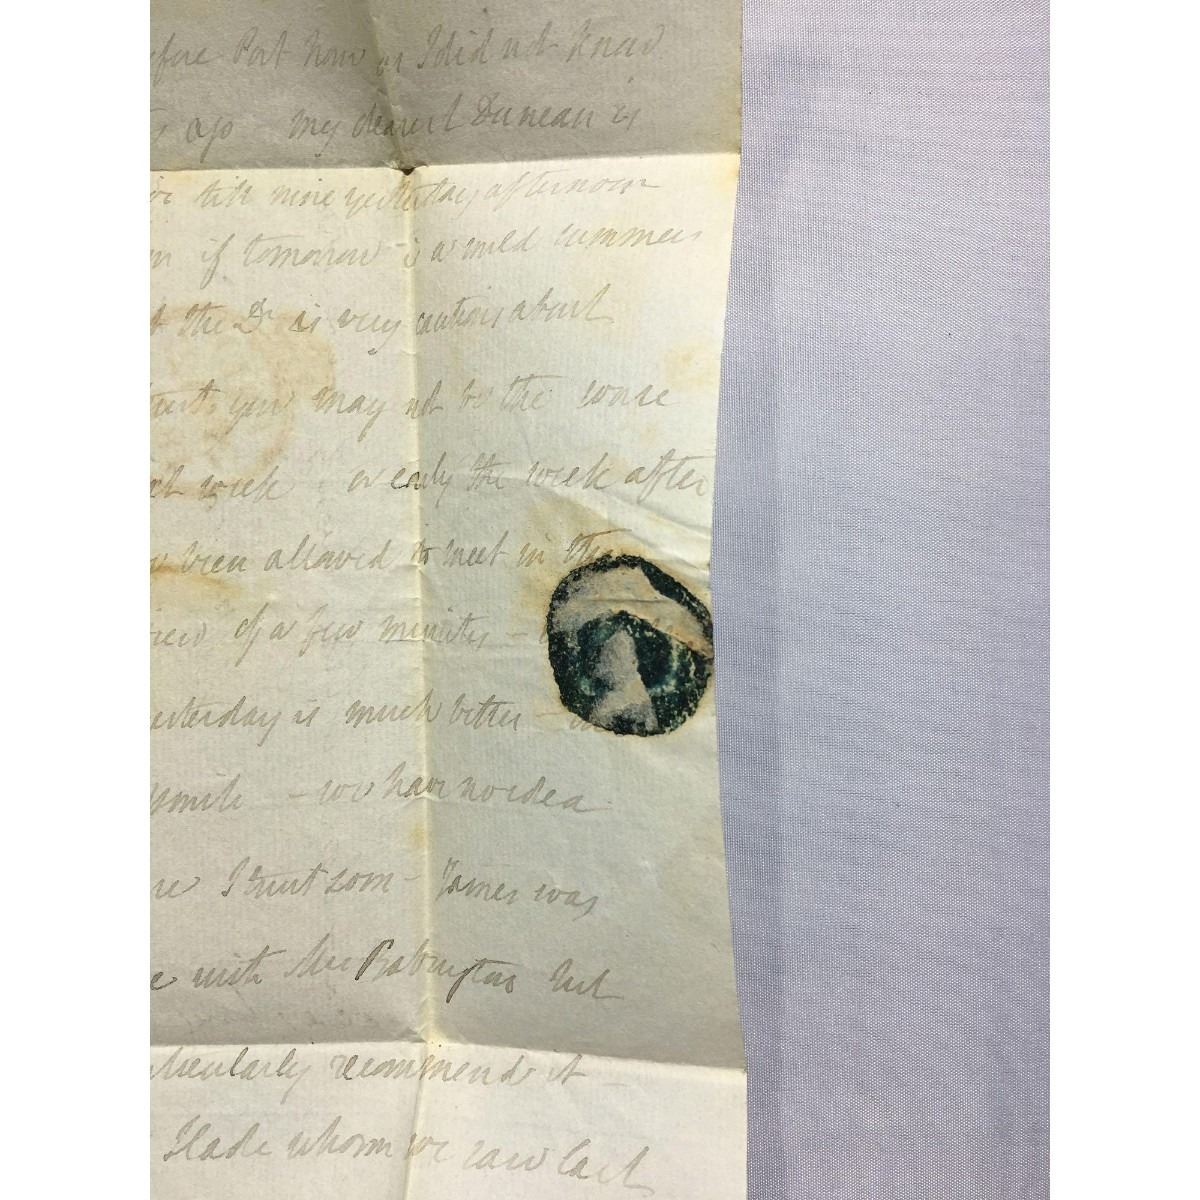 efore Post hour as I did not know
ago my dearest Duncan is
till nine yesterday afternoon
if tomorrow is a mild summers
the Dr is very cautious about
trust you may not be the worse
week or early the week after
been allowed to meet in the
of a few minutes –
esterday is much better –
smile – we have no idea
I trust soon – James was
with Mrs Babington but
ticularly recommends it –
Slade whom we saw last